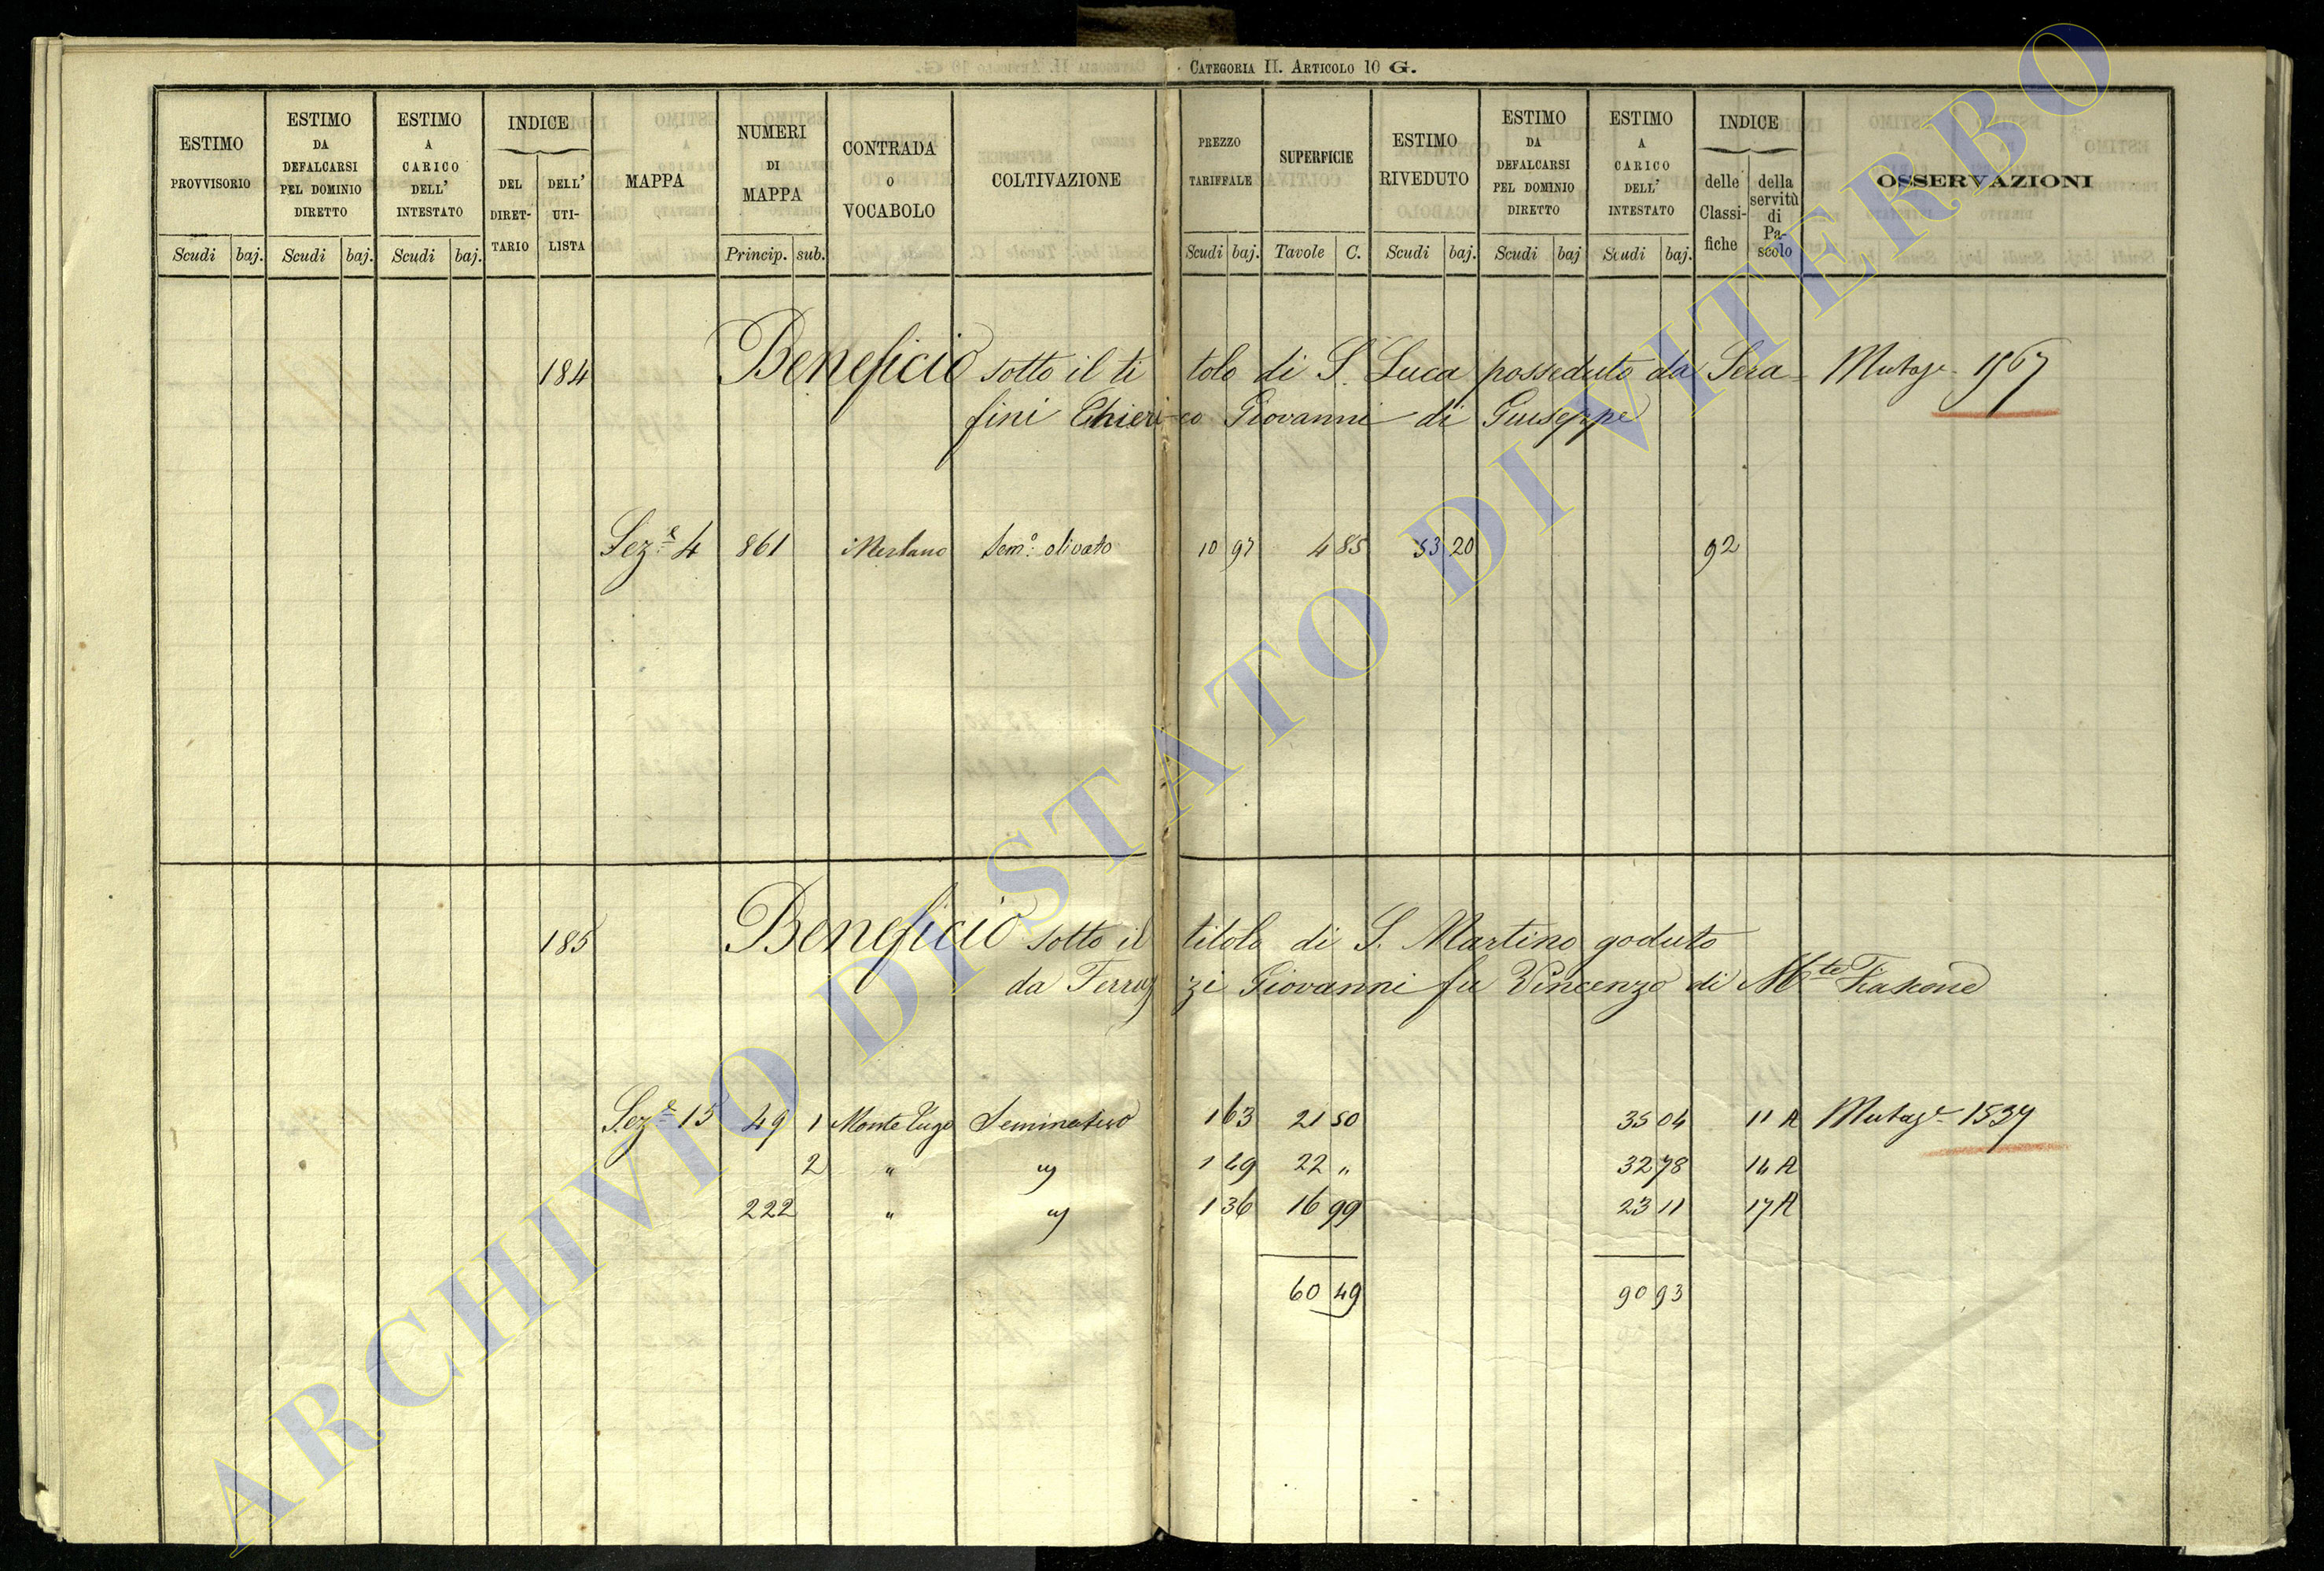 CATEGORIA II. ARTICOLO 10 G.
ESTIMO PROVVISORIO
ESTIMO DA DEFALCARSI PEL DOMINIO DIRETTO
ESTIMO A CARICO DELL' INTESTATO
INDICE
DEL DIRET-TARIO
DELL' UTI-LISTA
MAPPA
NUMERI DI MAPPA
CONTRADA O VOCABOLO
COLTIVAZIONE
PREZZO TARIFFALE
SUPERFICIE
ESTIMO RIVEDUTO
ESTIMO DA DEFALCARSI PEL DOMINIO DIRETTO
ESTIMO A CARICO DELL' INTESTATO
INDICE
delle Classi-fiche
della servitù di Pa-scolo
OSSERVAZIONI
Scudi baj. Scudi baj. Scudi baj. Princip. sub. Scudi baj. Tavole C. Scudi baj. Scudi baj Scudi baj.
184 Beneficio sotto il titolo di S. Luca posseduto da Sera- Mutaze 1567
fini Chierico Giovanni di Giuseppe
Seze 4 861 Merlano Semo: olivato 10 97 4 85 53 20 92
185 Beneficio sotto il titolo di S. Martino goduto
da Ferruzzi Giovanni fu Vincenzo di Mte Fiascone
Seze 15 49 1 Monte Lugo Seminativo 1 63 21 50 35 04 11 A Mutaze 1539
2 " " 1 49 22 " 32 78 14 A
222 " " 1 36 16 99 23 11 17 A
60 49 90 93
ARCHIVIO DI STATO DI VITERBO